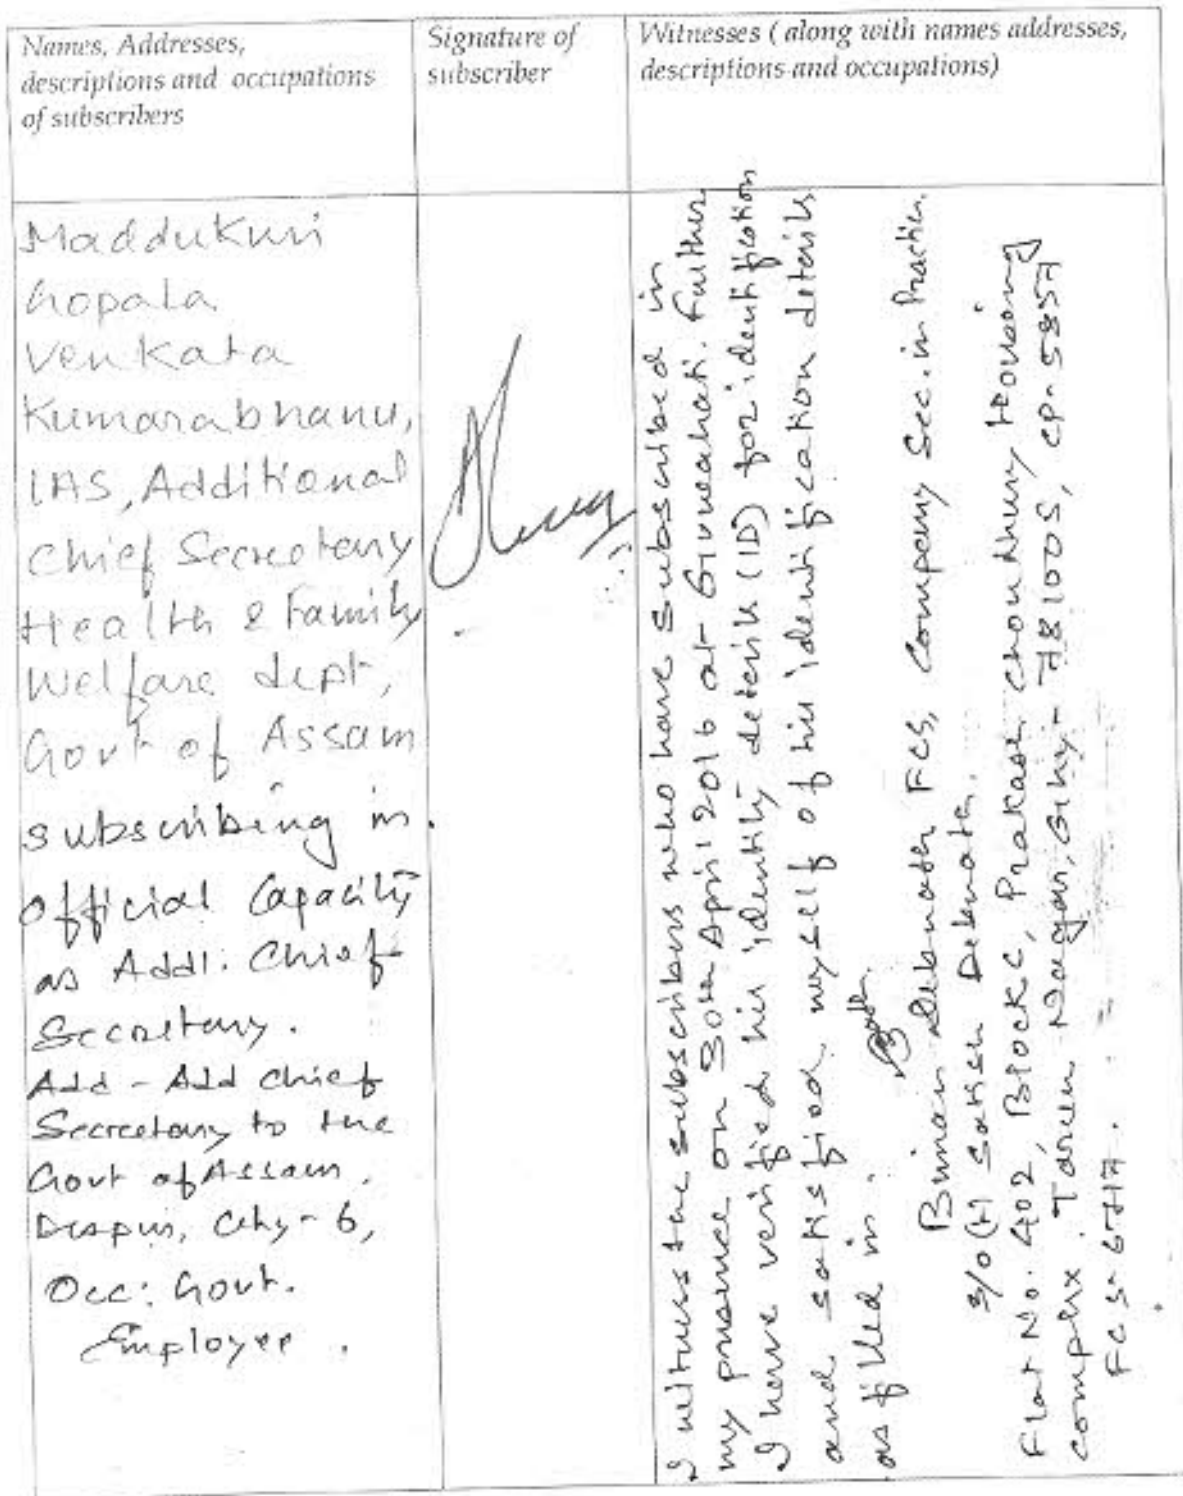 Names, Addresses,
descriptions and occupations
of subscribers
Signature of
subscriber
Witnesses ( along with names addresses,
descriptions and occupations)
Maddukuri
Gopala
Venkata
Kumarabhanu,
IAS, Additional
Chief Secretary
Health & Family
Welfare dept,
Govt of Assam
subscribing in
Official Capacity
as Addl. Chief
Secretary.
Add - Add Chief
Secretary to the
Govt of Assam,
Dispur, Ghy - 6,
Occ: Govt.
Employee.
I witness the subscribers who have subscribed in
my presence on 30th April 2016 at Guwahati. Further
I have verified his identity details (ID) for identification
and satisfied myself of his identification details
as filled in.
Biman Debnath FCS, Company Sec. in Practice.
S/o (L) Satish Debnath.
Flat No. 402, Block C, Prakash Choudhury Housing
Complex. Tarun Nagar, Ghy - 781005, CP-5857
FCS-6717.